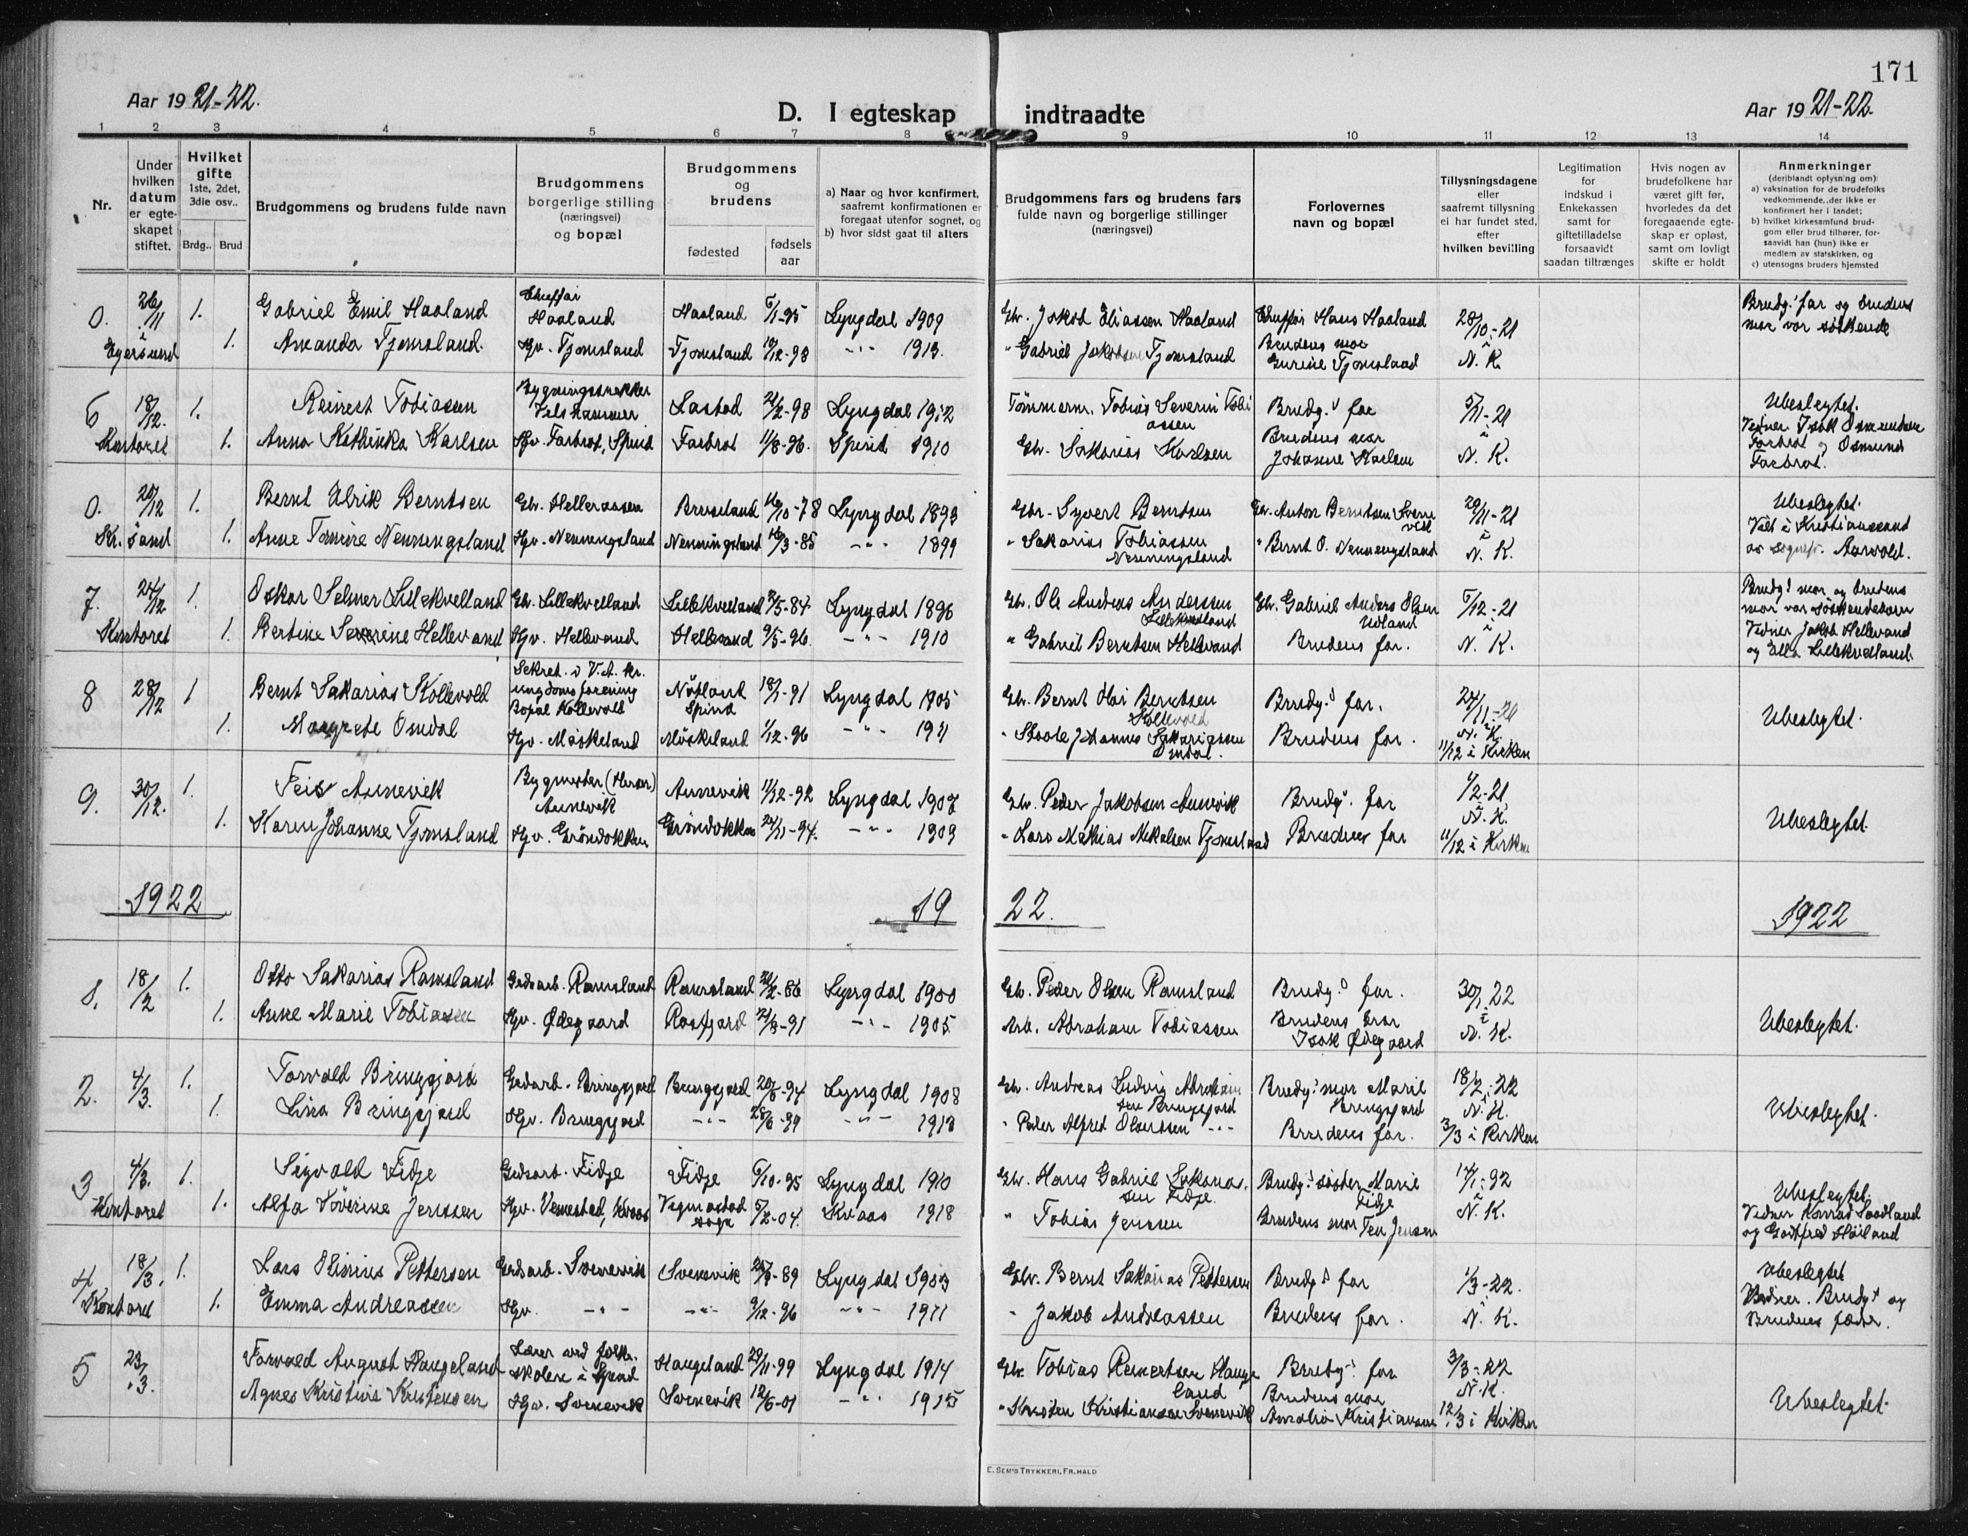 171
Aar 1921-22.
D. I egteskap indtraadte
Aar 1921-22.
1 2 3 4 5 6 7 8 9 10 11 12 13 14
Nr.
Under hvilken datum er egte-skapet stiftet.
Hvilket gifte
1ste, 2det, 3die osv..
Brdg.. Brud
Brudgommens og brudens fulde navn
Brudgommens borgerlige stilling (næringsvei) og bopæl
Brudgommens og brudens
fødested
fødsels aar
a) Naar og hvor konfirmert, saafremt konfirmationen er foregaat utenfor sognet, og
b) hvor sidst gaat til alters
Brudgommens fars og brudens fars fulde navn og borgerlige stillinger (næringsvei)
Forlovernes navn og bopæl
Tillysningsdagene eller saafremt tillysning ei har fundet sted, efter hvilken bevilling
Legitimation for indskud i Enkekassen samt for giftetilladelse forsaavidt saadan tiltrænges
Hvis nogen av brudefolkene har været gift før, hvorledes da det foregaaende egte-skap er opløst, samt om lovligt skifte er holdt
Anmerkninger
(deriblandt oplysning om):
a) vaksination for de brudefolks vedkommende, der ikke er konfirmert her i landet;
b) hvilket kirkesamfund brud-gom eller brud tilhører, for-saavidt han (hun) ikke er medlem av statskirken, og
c) utensogns bruders hjemsted
0. 26/11 1. Gabriel Emil Haaland Haaland Haaland 6/1-95 Lyngdal 1909 Gbr. Jakob Eliassen Haaland Hans Haaland 28/10-21 Brudg.s far og brudens mor var søskende
i Egersund 1. Amanda Tjomsland Hgv. Tjomsland Tjomsland 19/12-98 -"- 1913. " Gabriel Jakobsen Tjomsland Brudens mor Gurine Tjomsland N. K.
6 18/12. 1. Reinert Tobiassen Lastad 21/2-98 Lyngdal 1912 Tømmerm. Tobias Severin Tobiassen Brudg.s far 5/11-21 Ubeslegtet.
Kontoret 1. Anna Kathinka Karlsen Hgv. Farbrot, Spind Farbrot 11/8-96. Spind 1910 Gbr. Sakarias Karlsen Brudens mor Johanne Karlsen N. K. Farbrot og Osmund Farbrot.
0. 20/12 1. Bernt Ulrik Berntsen Gbr. Helleraasen Bruseland 16/10-78 Lyngdal 1893 Gbr. Syvert Berntsen Gbr. Anton Berntsen 29/11-21 Ubeslegtet.
Kr.sand 1. Anne Tomine Nenningsland Hgv. Nenningsland Nenningsland 16/3-85 -"- 1899 " Sakarias Tobiassen Nenningsland " Bernt O. Nenningsland N. K. Viet i Kristianssand av sognepr. Aarvold.
7. 24/12 1. Oskar Selmer Lillekvelland Gbr. Lillekvelland Lillekvelland 21/5-84 Lyngdal 1896 Gbr. Ole Andreas Anderssen Lillekvelland Gbr. Gabriel Anders Olsen 5/12-21 Brudg.s mor og brudens mor var søskendebarn
Kontoret 1. Bertine Severine Hellevand Hgv. Hellevand Hellevand 9/5-96. -"- 1910 " Gabriel Berntsen Hellevand Brudens far. N. K. Vidner Jakob Hellevand og Lillekvelland.
8 28/12 1 Bernt Sakarias Kollevold Sekret. i V.A. kr. ungdomsforening Bopæl Kollevold Nøtland Spind 18/7-91 Lyngdal 1905 Gbr. Bernt Olai Berntsen Kollevold Brudg.s far. 27/11-21 Ubeslegtet.
1. Margrete Omdal Hgv. Møskeland Møskeland 1/12-96 -"- 1911 " Johannes Sakariassen Omdal. Brudens far. N. K. 11/12 i Kirken
9. 30/12. 1. Feis Aunevik Bygmester Aunevik Aunevik 11/12-92 Lyngdal 1907 Gbr. Peder Jakobsen Aunevik Brudg.s far 1/2-21 Ubeslegtet.
1. Karen Johanne Tjomsland Hgv. Grøndokken Grøndokken 24/11-94. -"- 1909 " Lars Mathias Mikalsen Tjomsland Brudens far N. K. 11/12 i Kirken
1922 1922. 1922
1. 18/2 1. Otto Sakarias Ramsland Gadsarb. Ramsland Ramsland 21/2-86 Lyngdal 1900 Gbr. Peder Olsen Ramsland Brudg.s far. 30/1 22 Ubeslegtet.
1. Anne Marie Tobiassen Hgv. Ødegaard Rosfjord 21/3-91 -"- 1905 Arb. Abraham Tobiassen Brudens bror Isak Ødegaard N. K.
2. 4/3. 1. Torvald Bringsjord Gadsarb. Bringsjord Bringsjord 20/6-94 Lyngdal 1908 Gbr. Andreas Ludvig Abrahamsen Bringsjord Brudg.s mor Marie Bringsjord 18/2-22 Ubeslegtet.
1. Lina Bringsjord Hgv. Bringsjord -"- 28/6-99 -"- 1913 " Peder Alfred Olsen -"- Brudens far. N. K. 3/3 i Kirken
3 4/3. 1. Sigvald Fidje Gadsarb. Fidje Fidje 6/10-95 Lyngdal 1910 Gbr. Hans Gabriel Sakariassen Fidje. Brudg.s søster Marie Fidje 17/1-22 Ubeslegtet.
Kontoret 1. Alfa Severine Jenssen Hgv. Vemestad, Kvaas Vegmostad sogn 5/2-04. Kvaas 1918 " Tobias Jensen Brudens mor Tea Jensen N. K. Vidner Konrad og Gotfred
4 18/3. 1. Lars Olinius Pettersen Gadsarb. Svenevik Svenevik 29/9-89 Lyngdal 1903 Gbr. Bernt Sakarias Pettersen Brudg.s far 1/3-22. Ubeslegtet
Kontoret 1. Emma Andreassen Hgv. -"- -"- 9/12-96 -"- 1911 " Jakob Andreassen Brudens far. N. K. Vidner. Brudg.s og Brudens fædre.
5 23/3. Torvald August Haugeland Lærer ved folkeskolen i Spind Haugeland 29/11-99 Lyngdal 1914 Gbr. Tobias Reinertsen Haugeland Brudg.s far 3/3-22 Ubeslegtet.
Agnes Kristine Kristensen Hgv. Svenevik Svenevik 12/6-01 -"- 1915 " Kristen Kristiansen Svenevik Brudens mor Amalia Kristiansen N. K. 12/3 i Kirken
E. SEM'S TRYKKERI, FR.HALD